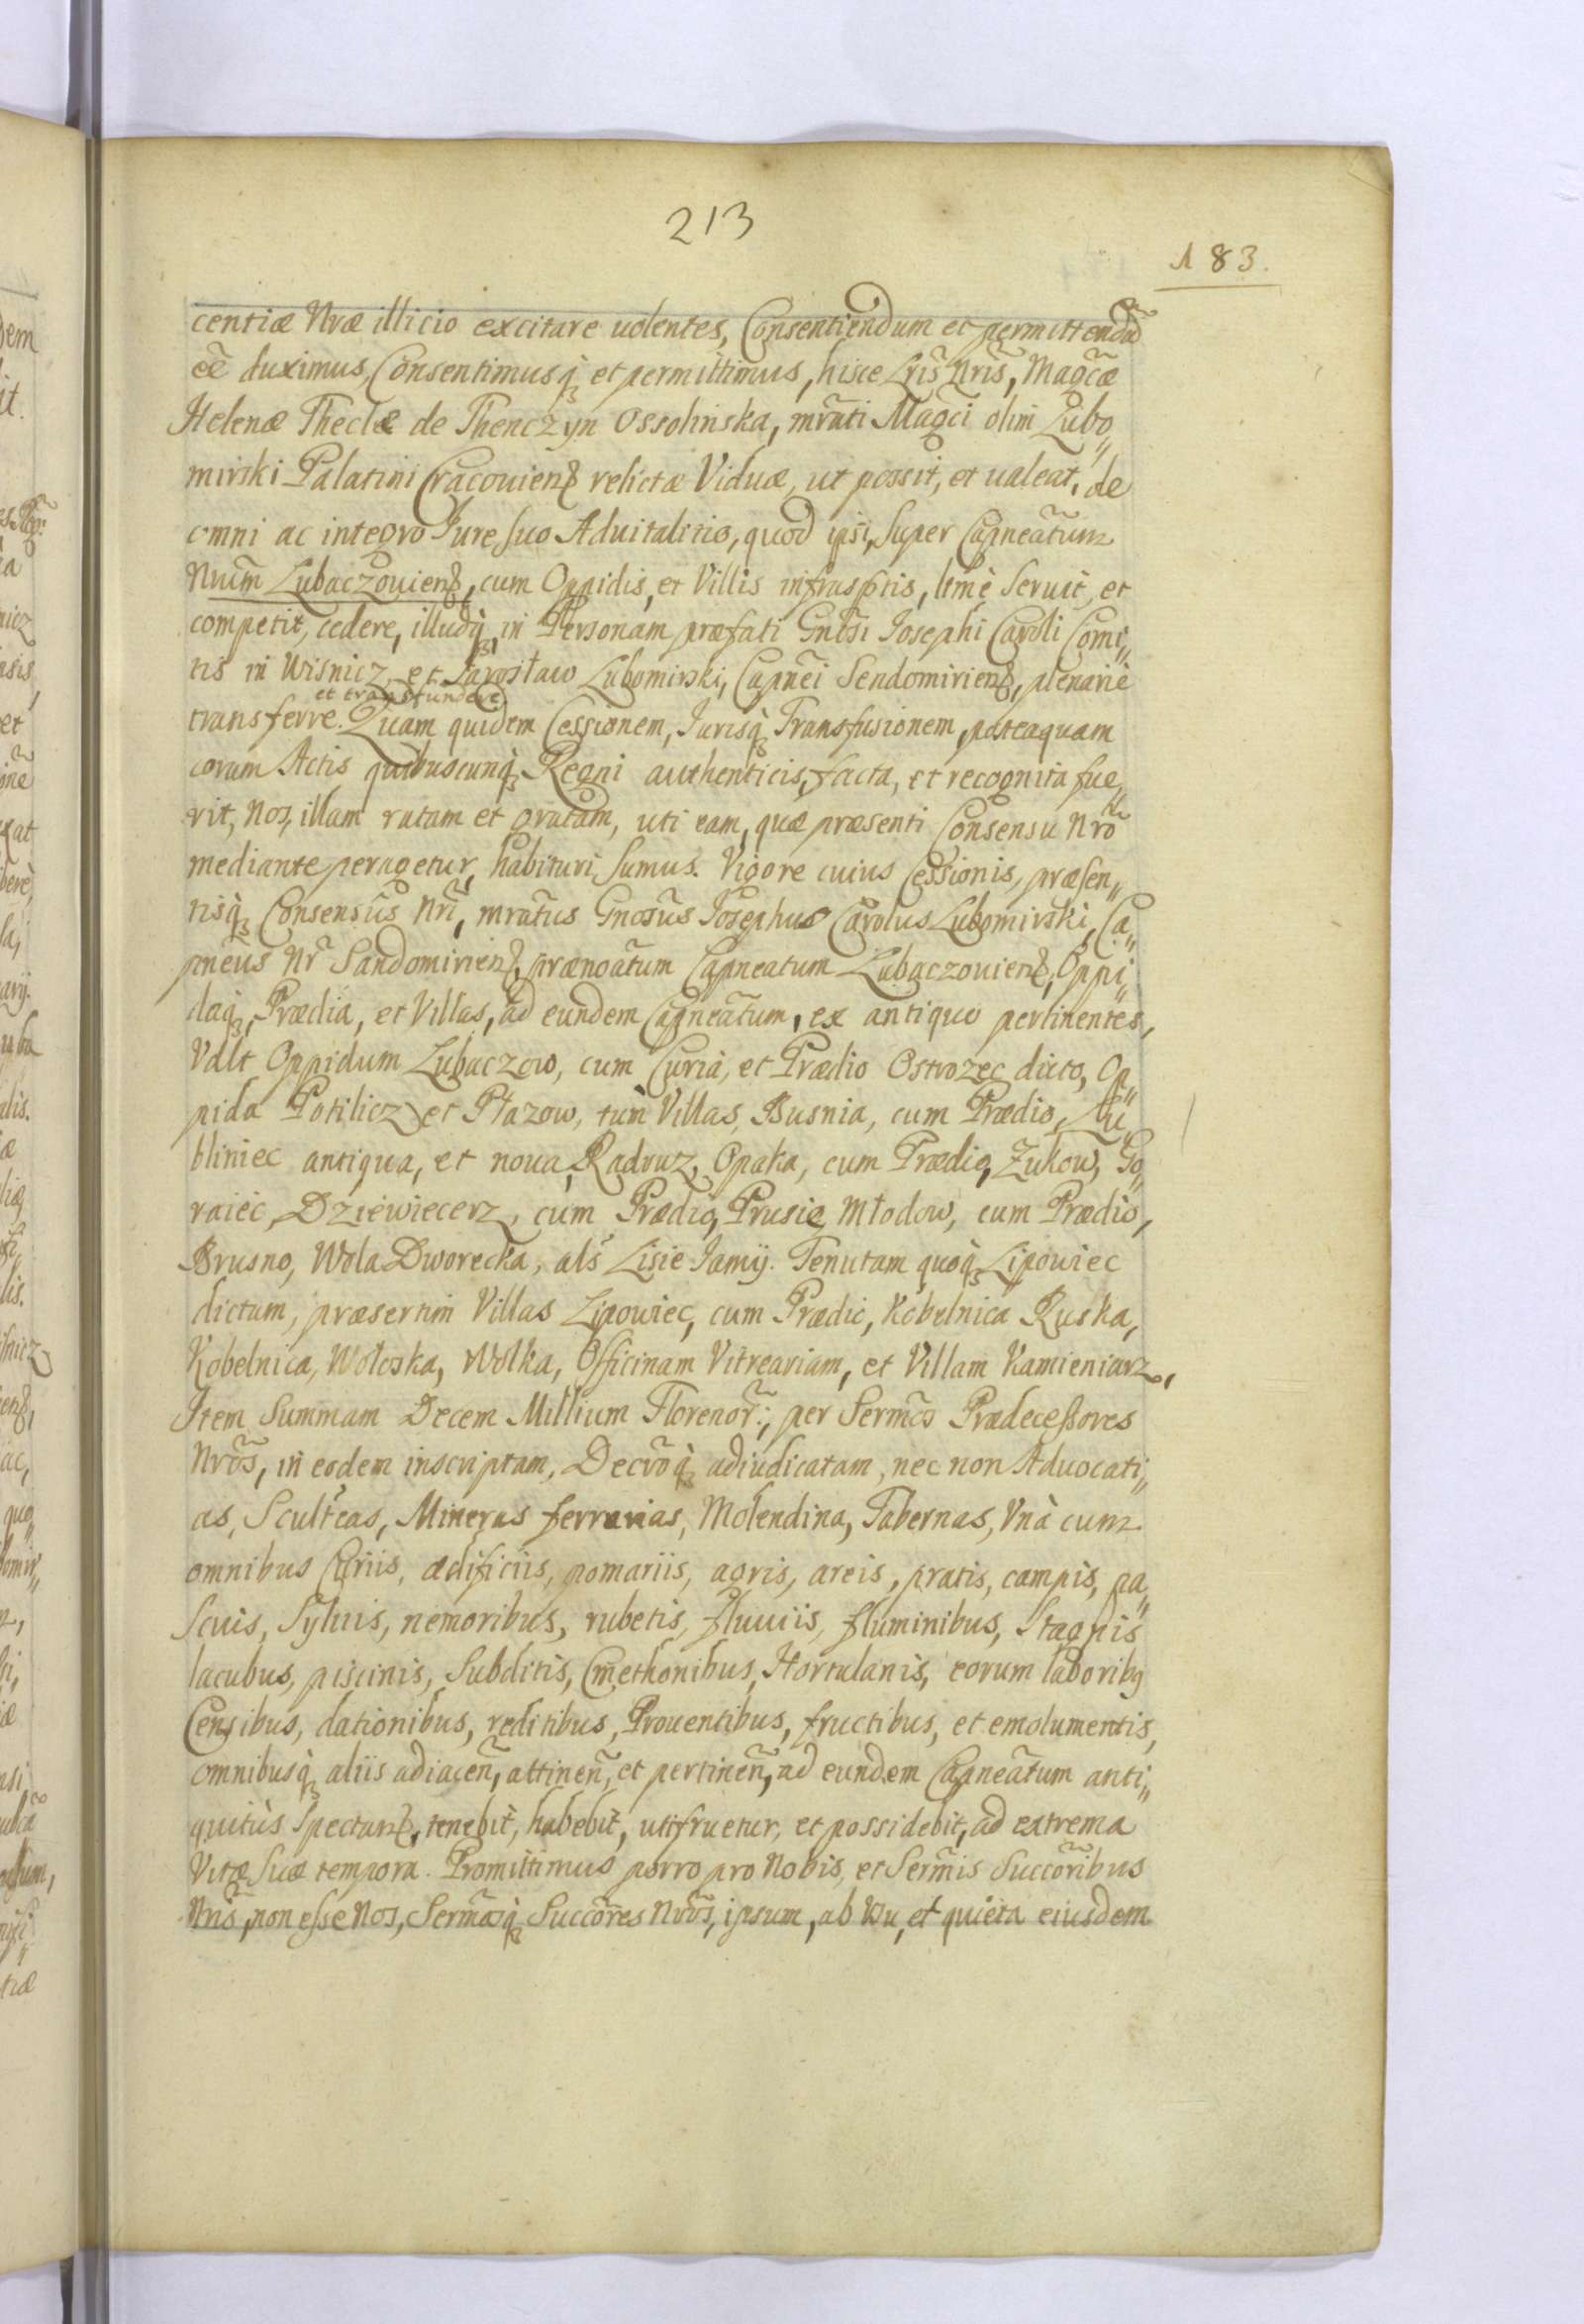 213
183.
centiæ Nræ illicio excitare uolentes, Consentiendum et permittendũ
eẽ duximus, Consentimusq̃ et permittimus, hisce Lris̃ Nris̃, Magcæ
Helenæ Theclæ de Thenczyn Ossolinska, mrati Magci olim Lubo„
mirski Palatini Cracouien̄ relictæ Viduæ, ut possit, et ualeat, de
omni ac integro Jure suo Aduitalitio, quod ipsi, super Capneatum
Nrum Lubaczouien̄, cum Oppidis, et Villis infrasptis, ltmè Seruit, et
competit, cedere, illudq̃, in Personam præfati Gnosi Josephi Caroli Comi„
tis in Wisnicz, et Jarosław Lubomirski, Capnei Sendomirien̄, plenariè
et transfundere
transferre. Quam quidem Cessionem, Jurisq̃ Transfusionem, posteaquam
coram Actis quibuscunq̃ Regni authenticis, facta, et recognita fue„
rit, Nos, illam ratam et gratam, uti eam, quæ præsenti Consensu Nrõ
mediante peragetur, habituri sumus. Vigore cuius Cessionis, præsen„
tisq̃ Consensûs Nri, mratus Gnosus Josephus Carolus Lubomirski, Ca„
pneus Nr Sandomirien̄, prænoatum Capneatum Lubaczouien̄, Oppi„
daq̃, Prædia, et Villas, ad eundem Capneatum, ex antiquo pertinentes,
Vdlt Oppidum Lubaczow, cum Curia, et Prædio Ostrozec dicto, Op„
pida Potilicz et Płazow, tum Villas, Busnia, cum Prædio, Lu„
bliniec antiqua, et noua, Radruz, Opaka, cum Prædio, Zukow, Go„
raiec, Dziewiecerz, cum Prædio, Prusie, Młodow, cum Prædio,
Brusno, Wola Dworecka, als Lisie Jamÿ. Tenutam quoq̃ Lipowiec
dictam, præsertim Villas Lipowiec, cum Prædio, Kobelnica Ruska,
Kobelnica, Wołoska, Wolka, Officinam Vitreariam, et Villam Kamieniarz,
Item Summam Decem Millium Florenor̃:, per Sermos Prædecessores
Nrõs, in eodem inscriptam, Decroq̃ adiudicatam, nec non Aduocati„
as, Sculteas, Mineras ferrarias, Molendina, Tabernas, Vnà cum
omnibus Curiis, ædificiis, pomariis, agris, areis, pratis, campis, pa„
scuis, Syluis, nemoribus, rubetis, fluuiis, fluminibus, Stagnis
lacubus, piscinis, Subditis, Cmethonibus, Hortulanis, eorum laboribq
Censibus, dationibus, reditibus, Prouentibus, fructibus, et emolumentis,
omnibusq̃ aliis adiacen̄, attinen̄, et pertinen̄, ad eundem Capneatum anti„
quitùs Spectan̄, tenebit, habebit, utifruetur, et possidebit, ad extrema
Vitæ Suæ tempora. Promittimus porro pro Nobis, et Sermis Succoribus
Nris, non esse Nos, Sermosq̃ Succores Nros, ipsum, ab Vsu, et quieta eiusdem